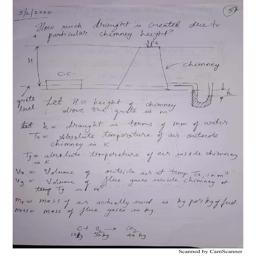 3/2/2020
37
How much draught is created due to
particular chimney height?
H
chimney
C.C.
h
grate
level
Let H = height of chimney
above the grate in m
Let h = draught in terms of mm of water
Ta = Absolute temperature of air outside
chimney in K
Tg = absolute temperature of air inside chimney
in K
Volume of outside air at temp Ta, in m³
Vg = Volume of flue gases inside chimney at
temp Tg in
mass of air actually used in kg per kg of fuel
mass of flue gases in kg
C + O₂ → CO₂
Scanned by CamScanner